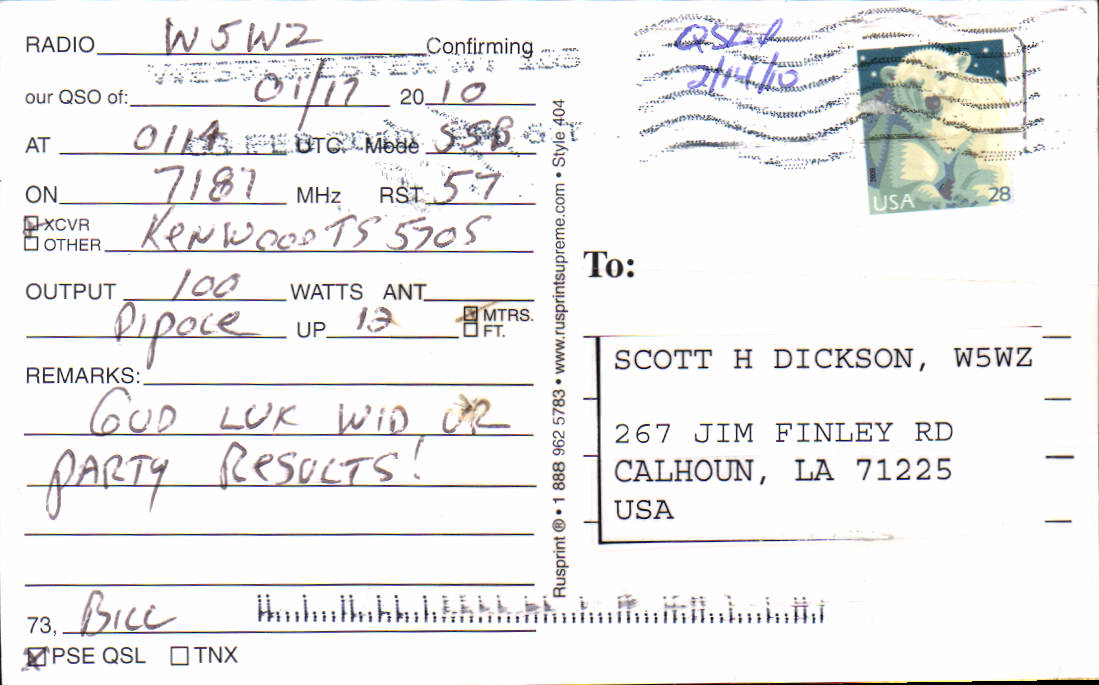 RADIO W5WZ Confirming
our QSO of: 01/17 2010
AT 0114 UTC Mode SSB
ON 7187 MHz RST 57
XCVR
OTHER KENWOOD TS 570S
OUTPUT 100 WATTS ANT
Dipole UP 12 MTRS.
FT.
REMARKS:
GUD LUK WID UR
PARTY RESULTS!
73, BILL
PSE QSL TNX
Rusprint ® • 1 888 962 5783 • www.rusprintsupreme.com • Style 404
QSL'd
2/14/10
USA 28
To:
SCOTT H DICKSON, W5WZ
267 JIM FINLEY RD
CALHOUN, LA 71225
USA